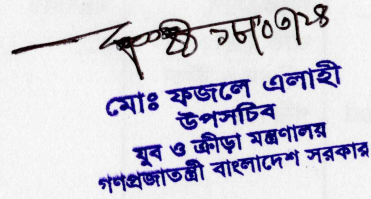 মোঃ ফজলে এলাহী
উপসচিব
যুব ও ক্রীড়া মন্ত্রণালয়
গণপ্রজাতন্ত্রী বাংলাদেশ সরকার